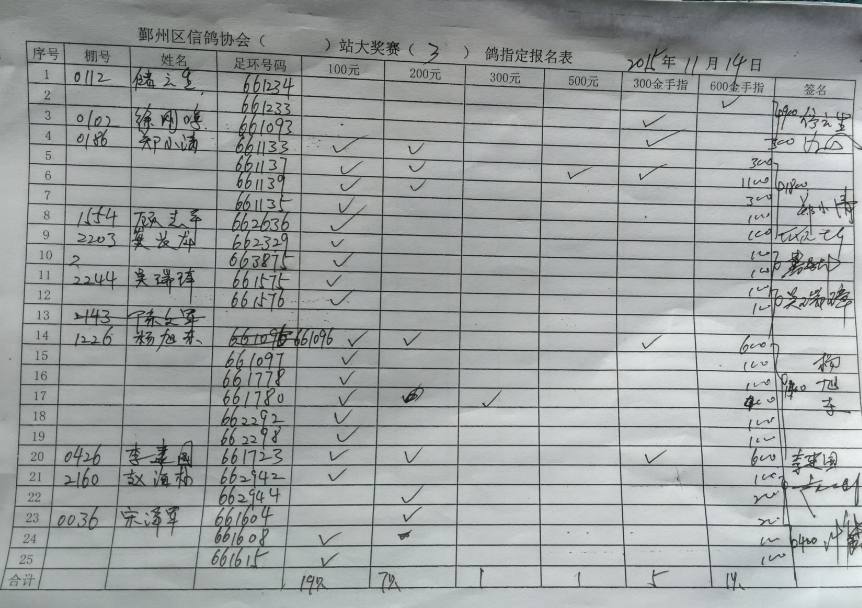 鄞州区信鸽协会（ ）站大奖赛（ 3 ）鸽指定报名表 2015年11月14日
序号 棚号 姓名 足环号码 100元 200元 300元 500元 300金手指 600金手指 签名
1 0112 储云生 661234
2 661233 ✓
3 0102 661093 ✓
4 0186 郑小清 661133 ✓ ✓ ✓ 300
5 661137 ✓ ✓ 300
6 661139 ✓ ✓ ✓ ✓ 1100
7 661135 ✓ 300
8 1554 顾志平 662636 ✓ 100
9 2203 吴发龙 662329 ✓ 100
10 2 663875 ✓ 100
11 2244 吴瑞璋 661575 ✓ 100
12 661576 ✓ 100
13 2143
14 1226 杨旭东 661096 ✓ ✓ ✓ 600 杨
15 661097 ✓ 100 旭
16 661778 ✓ 100 东
17 661780 ✓ ✓
18 662292 ✓ 100
19 662298 ✓ 100
20 0426 李建国 661723 ✓ ✓ ✓ 600 李建国
21 2160 662942 ✓ 100
22 662944 ✓ 200
23 0036 宋泽军 661604 ✓ 200
24 661608 ✓ 100
25 661615 ✓ 100
合计 19只 7只 1 1 5 1只